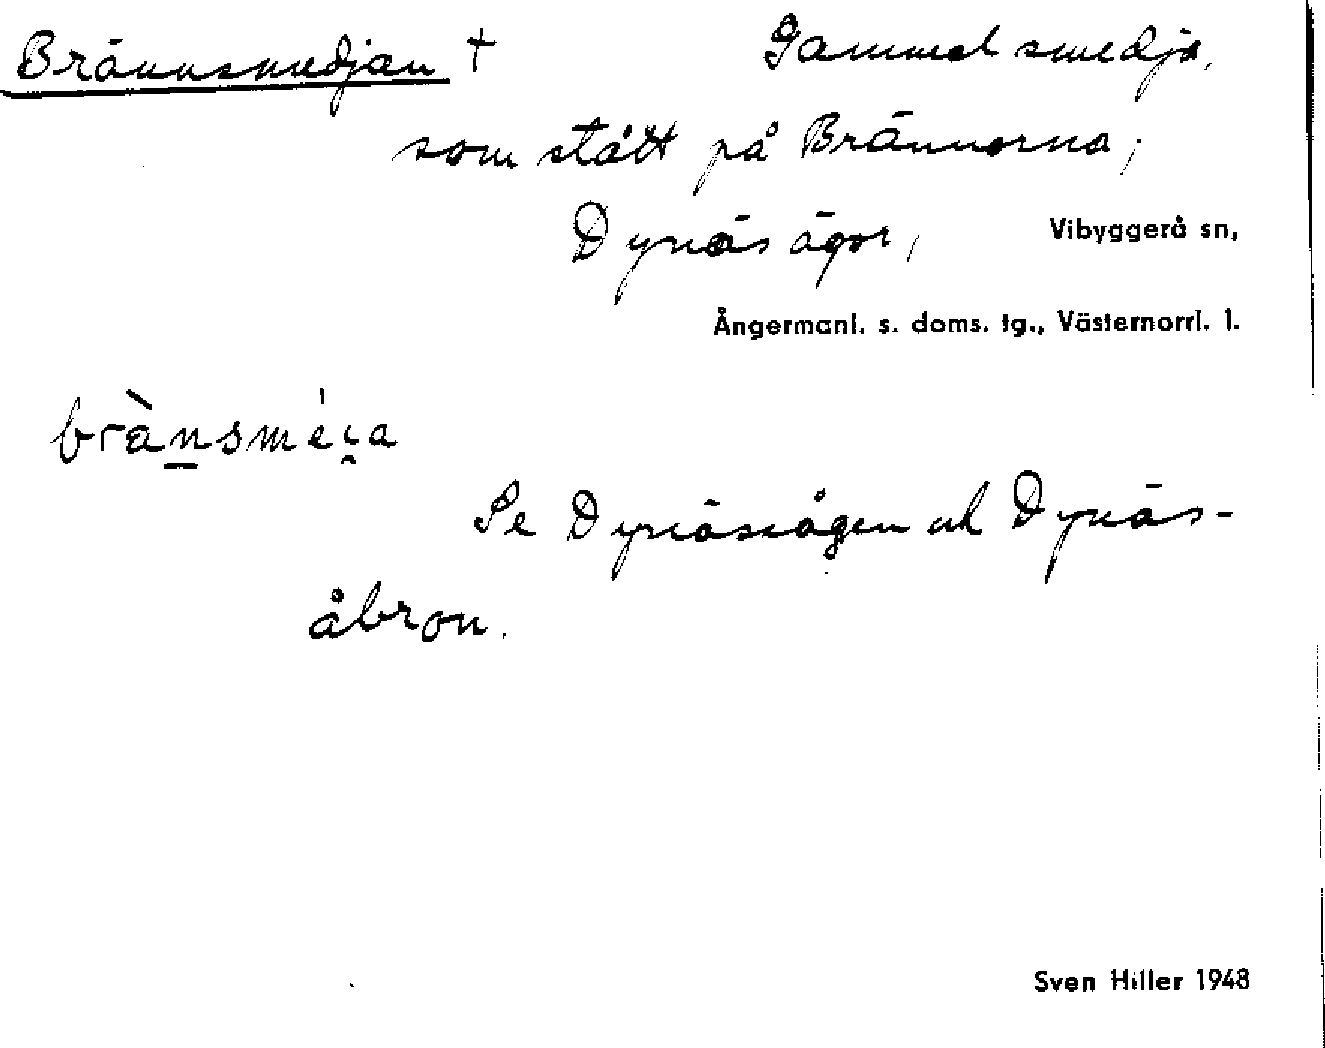 Brännsmedjan † Gammel smedja,
som stått på Brännorna;
Dynäs ägor, Vibyggerå sn,
Ångermanl. s. doms. tg., Västernorrl. l.
Se Dynässågen ul Dynäs-
åbron.
Sven Hiller 1948